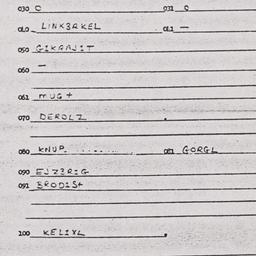 030 O 031 O
010 LINKBAKEL 011 —
050 GIKRAJIT
060 —
061 MUG +
070 DEROLZ
080 KNUP. 081 GORGL
090 EJZBRIG
091 BRODIST
100 KELIXL